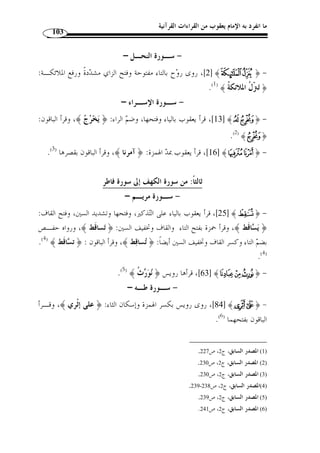 ما انفرد به الإمام يعقوب من القراءات القرآنية
103
– سـورة النحـل –
– ﴿ يُنَزِّلُ الْمَلَائِكَةَ ﴾ [2]، روى روح بالتاء مفتوحة وفتح الزاي مشدّدةً ورفع الملائكـة:
﴿ تَنَزَّلُ الملائكةُ ﴾ (1).
– سـورة الإسـراء –
– ﴿ وَنُخْرِجُ لَهُ ﴾ [13]، قرأ يعقوب بالياء وفتحها، وضمّ الراء: ﴿ يَخْرُجُ ﴾، وقرأ الباقون:
﴿ وَنُخْرِجُ ﴾ (2).
– ﴿ أَمَرْنَا مُتْرَفِيهَا ﴾ [16]، قرأ يعقوب بمدّ الهمزة: ﴿ آمرنا ﴾، وقرأ الباقون بقصرها (3).
ثالثاً: من سورة الكهف إلى سورة فاطر
– سـورة مريـم –
– ﴿ تُسَاقِطْ ﴾ [25]، قرأ يعقوب بالياء على التّذكير، وفتحها وتشديد السين، وفتح القاف:
﴿ يَسَّاقَط ﴾، وقرأ حمزة بفتح التاء والقاف وتخفيف السين: ﴿ تَساقَط ﴾، ورواه حفـص
بضمّ التاء وكسر القاف وتخفيف السين أيضاً: ﴿ تُساقِط ﴾، وقرأ الباقون : ﴿ تَسَّاقَط ﴾ (4).
(4).
– ﴿ نُورِثُ مِنْ عِبَادِنَا ﴾ [63]، قرأها رويس ﴿ نُوَرِّثُ ﴾ (5).
– سـورة طـه –
– ﴿ عَلَى أَثَرِي ﴾ [84]، روى رويس بكسر الهمزة وإسكان الثاء: ﴿ على إثْري ﴾، وقـرأ
الباقون بفتحهما (6).
(1) المصدر السابق، ج2، ص227.
(2) المصدر السابق، ج2، ص230.
(3) المصدر السابق، ج2، ص230.
(4) المصدر السابق، ج2، ص238-239.
(5) المصدر السابق، ج2، ص239.
(6) المصدر السابق، ج2، ص241.